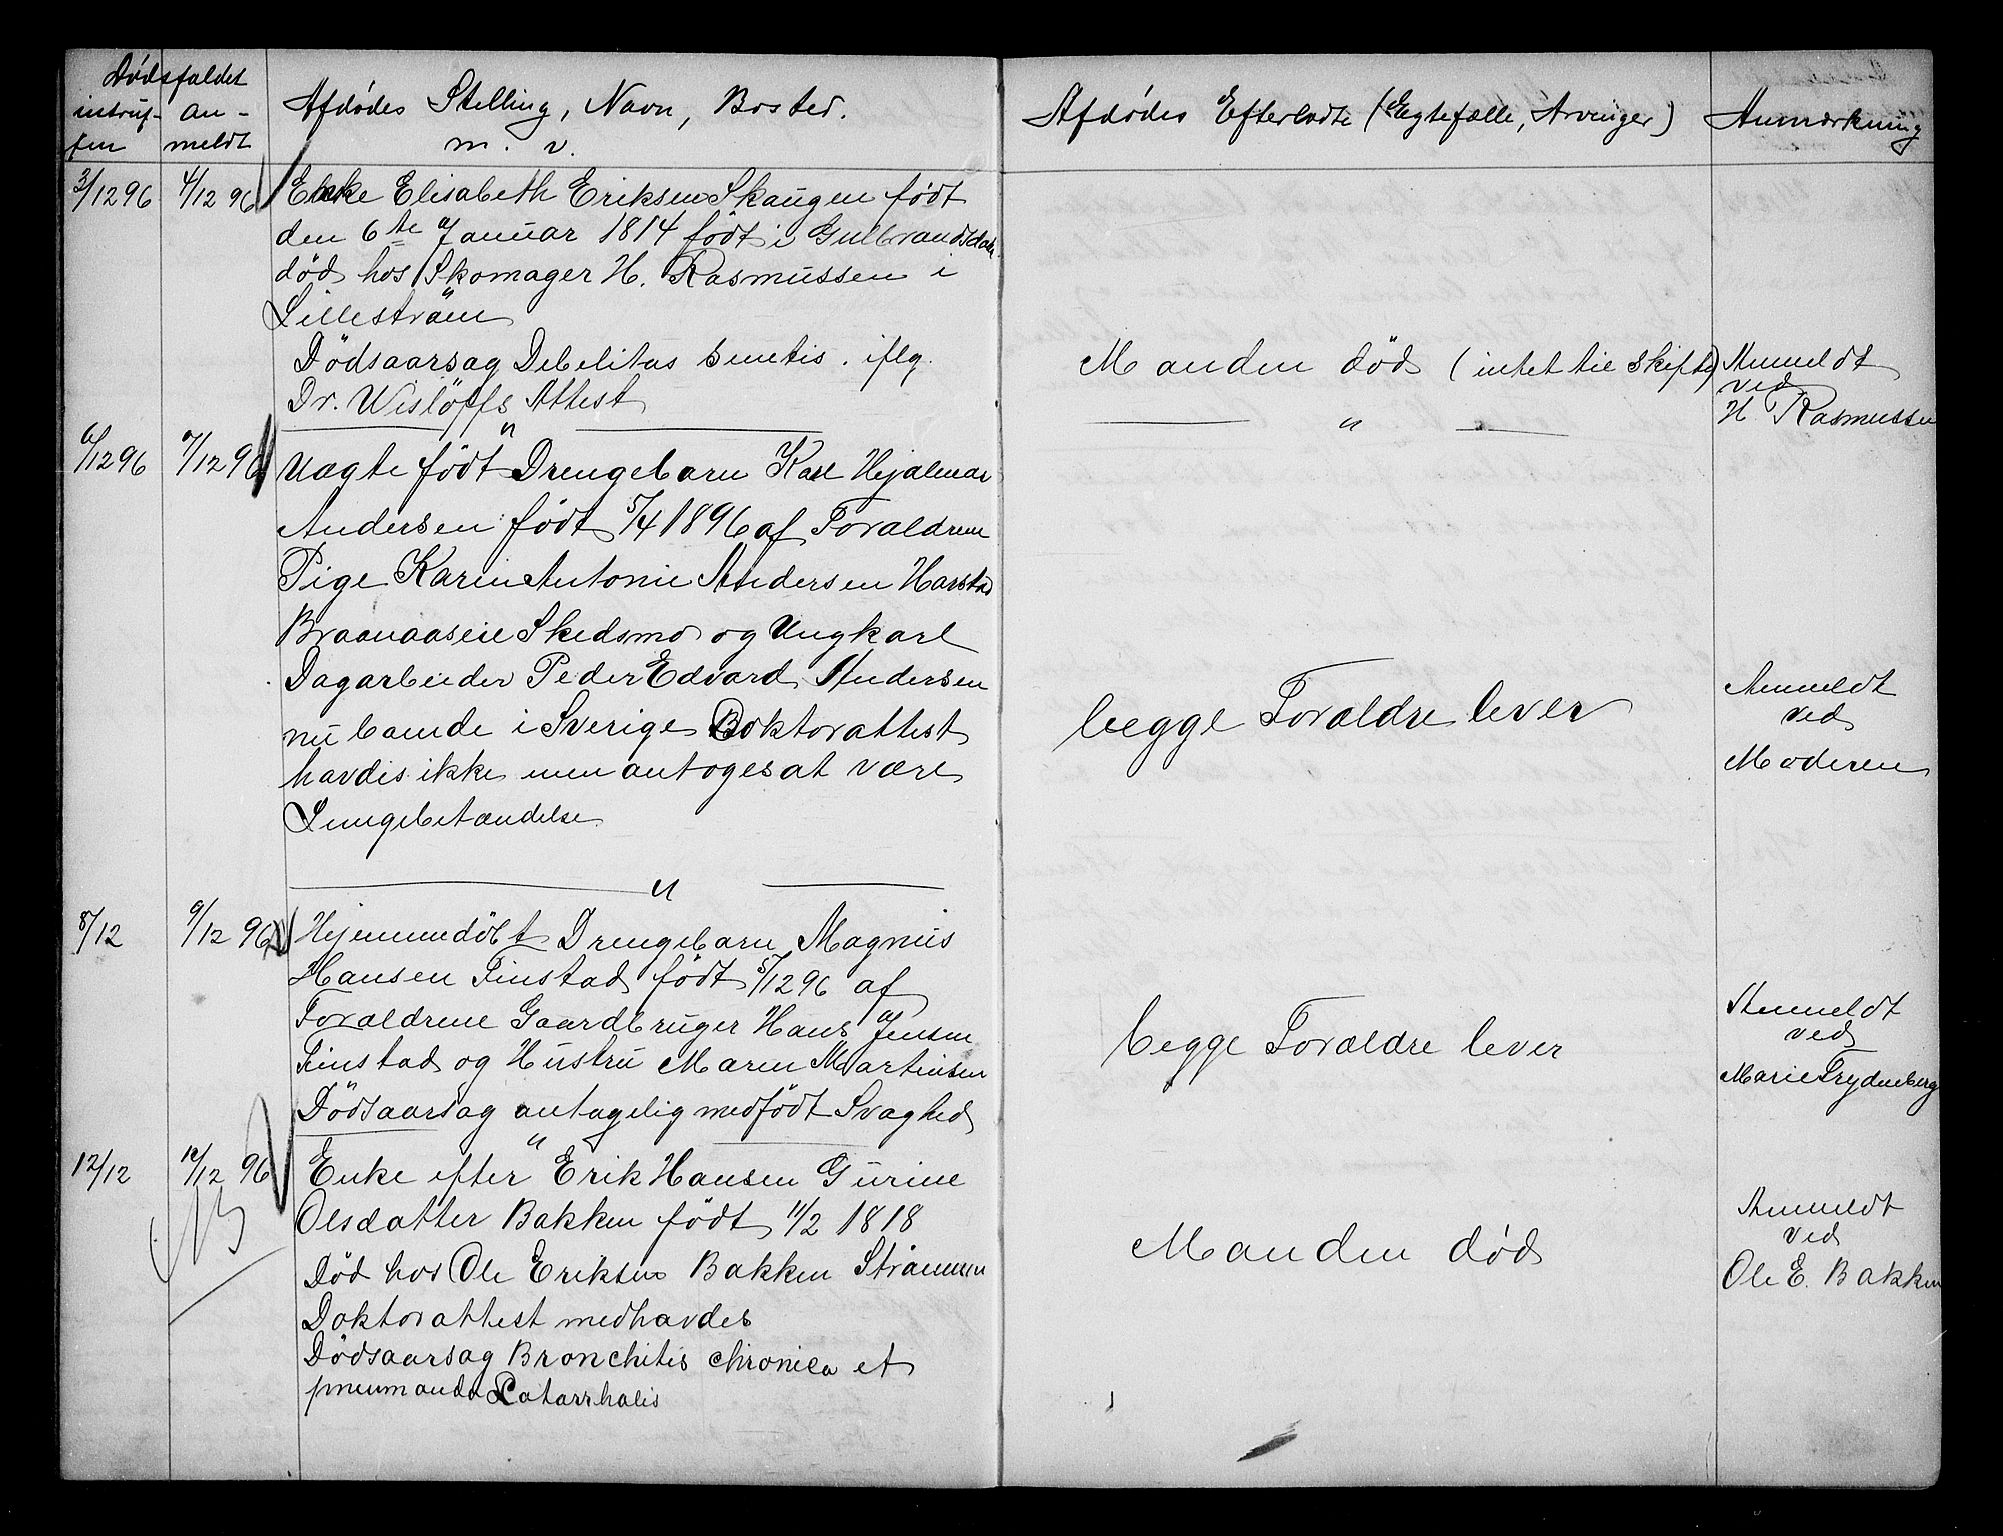 Dødsfaldet
indtruf-
fen
an-
meldt
Afdødes Stelling, Navn, Bosted.
m. v.
Afdødes Efterladte (Egtefælle, Arvinger)
Anmærkning
3/12 96
4/12 96
Enke Elisabeth Eriksen Skaugen født
den 6te Januar 1814 født i Gulbrandsdalen
død hos Skomager H. Rasmussen i
Lilleström
Dödsaarsag Debelitas senetis. iflg.
Dr. Wislöffs Attest
Manden död (intet til Skifte)
Anmeldt
ved
H Rasmussen
6/12 96
7/12 96
Uægte født Drengebarn Karl Hejalmar
Andersen født 5/4 1896 af Forældrene
Pige Karin Antonie Andersen Harstad
Braanaaseie Skedsmo og Ungkarl
Dagarbeider Peder Edvard Andersen
nu boende i Sverige Doktorattest
havdes ikke men antoges at være
Lungebetændelse
begge Forældre lever
Anmeldt
ved
Moderen
8/12
9/12 96
Hjemmedöbt Drengebarn Magnus
Hansen Finstad født 5/12 96 af
Forældrene Gaardbruger Hans Jensen
Finstad og Hustru Maren Martinsen
Dödsaarsag antagelig medfödt Svaghed
begge Forældre lever
Anmeldt
ved
Marie Frydenberg
12/12
12/12 96
Enke efter Erik Hansen Gurine
Olsdatter Bakken født 11/2 1818
Död hos Ole Eriksen Bakken Strömmen
Doktorattest medhavdes
Dödsaarsag Bronchitis chronica et
pneumonda Catarrhalis
Manden död
Anmeldt
ved
Ole E. Bakken